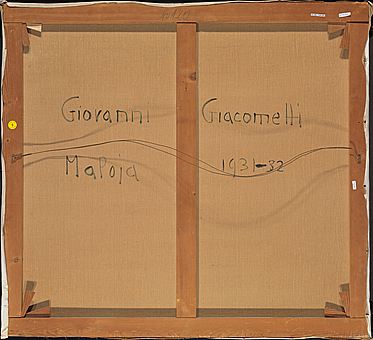 Giovanni Giacometti
Maloja 1931-32